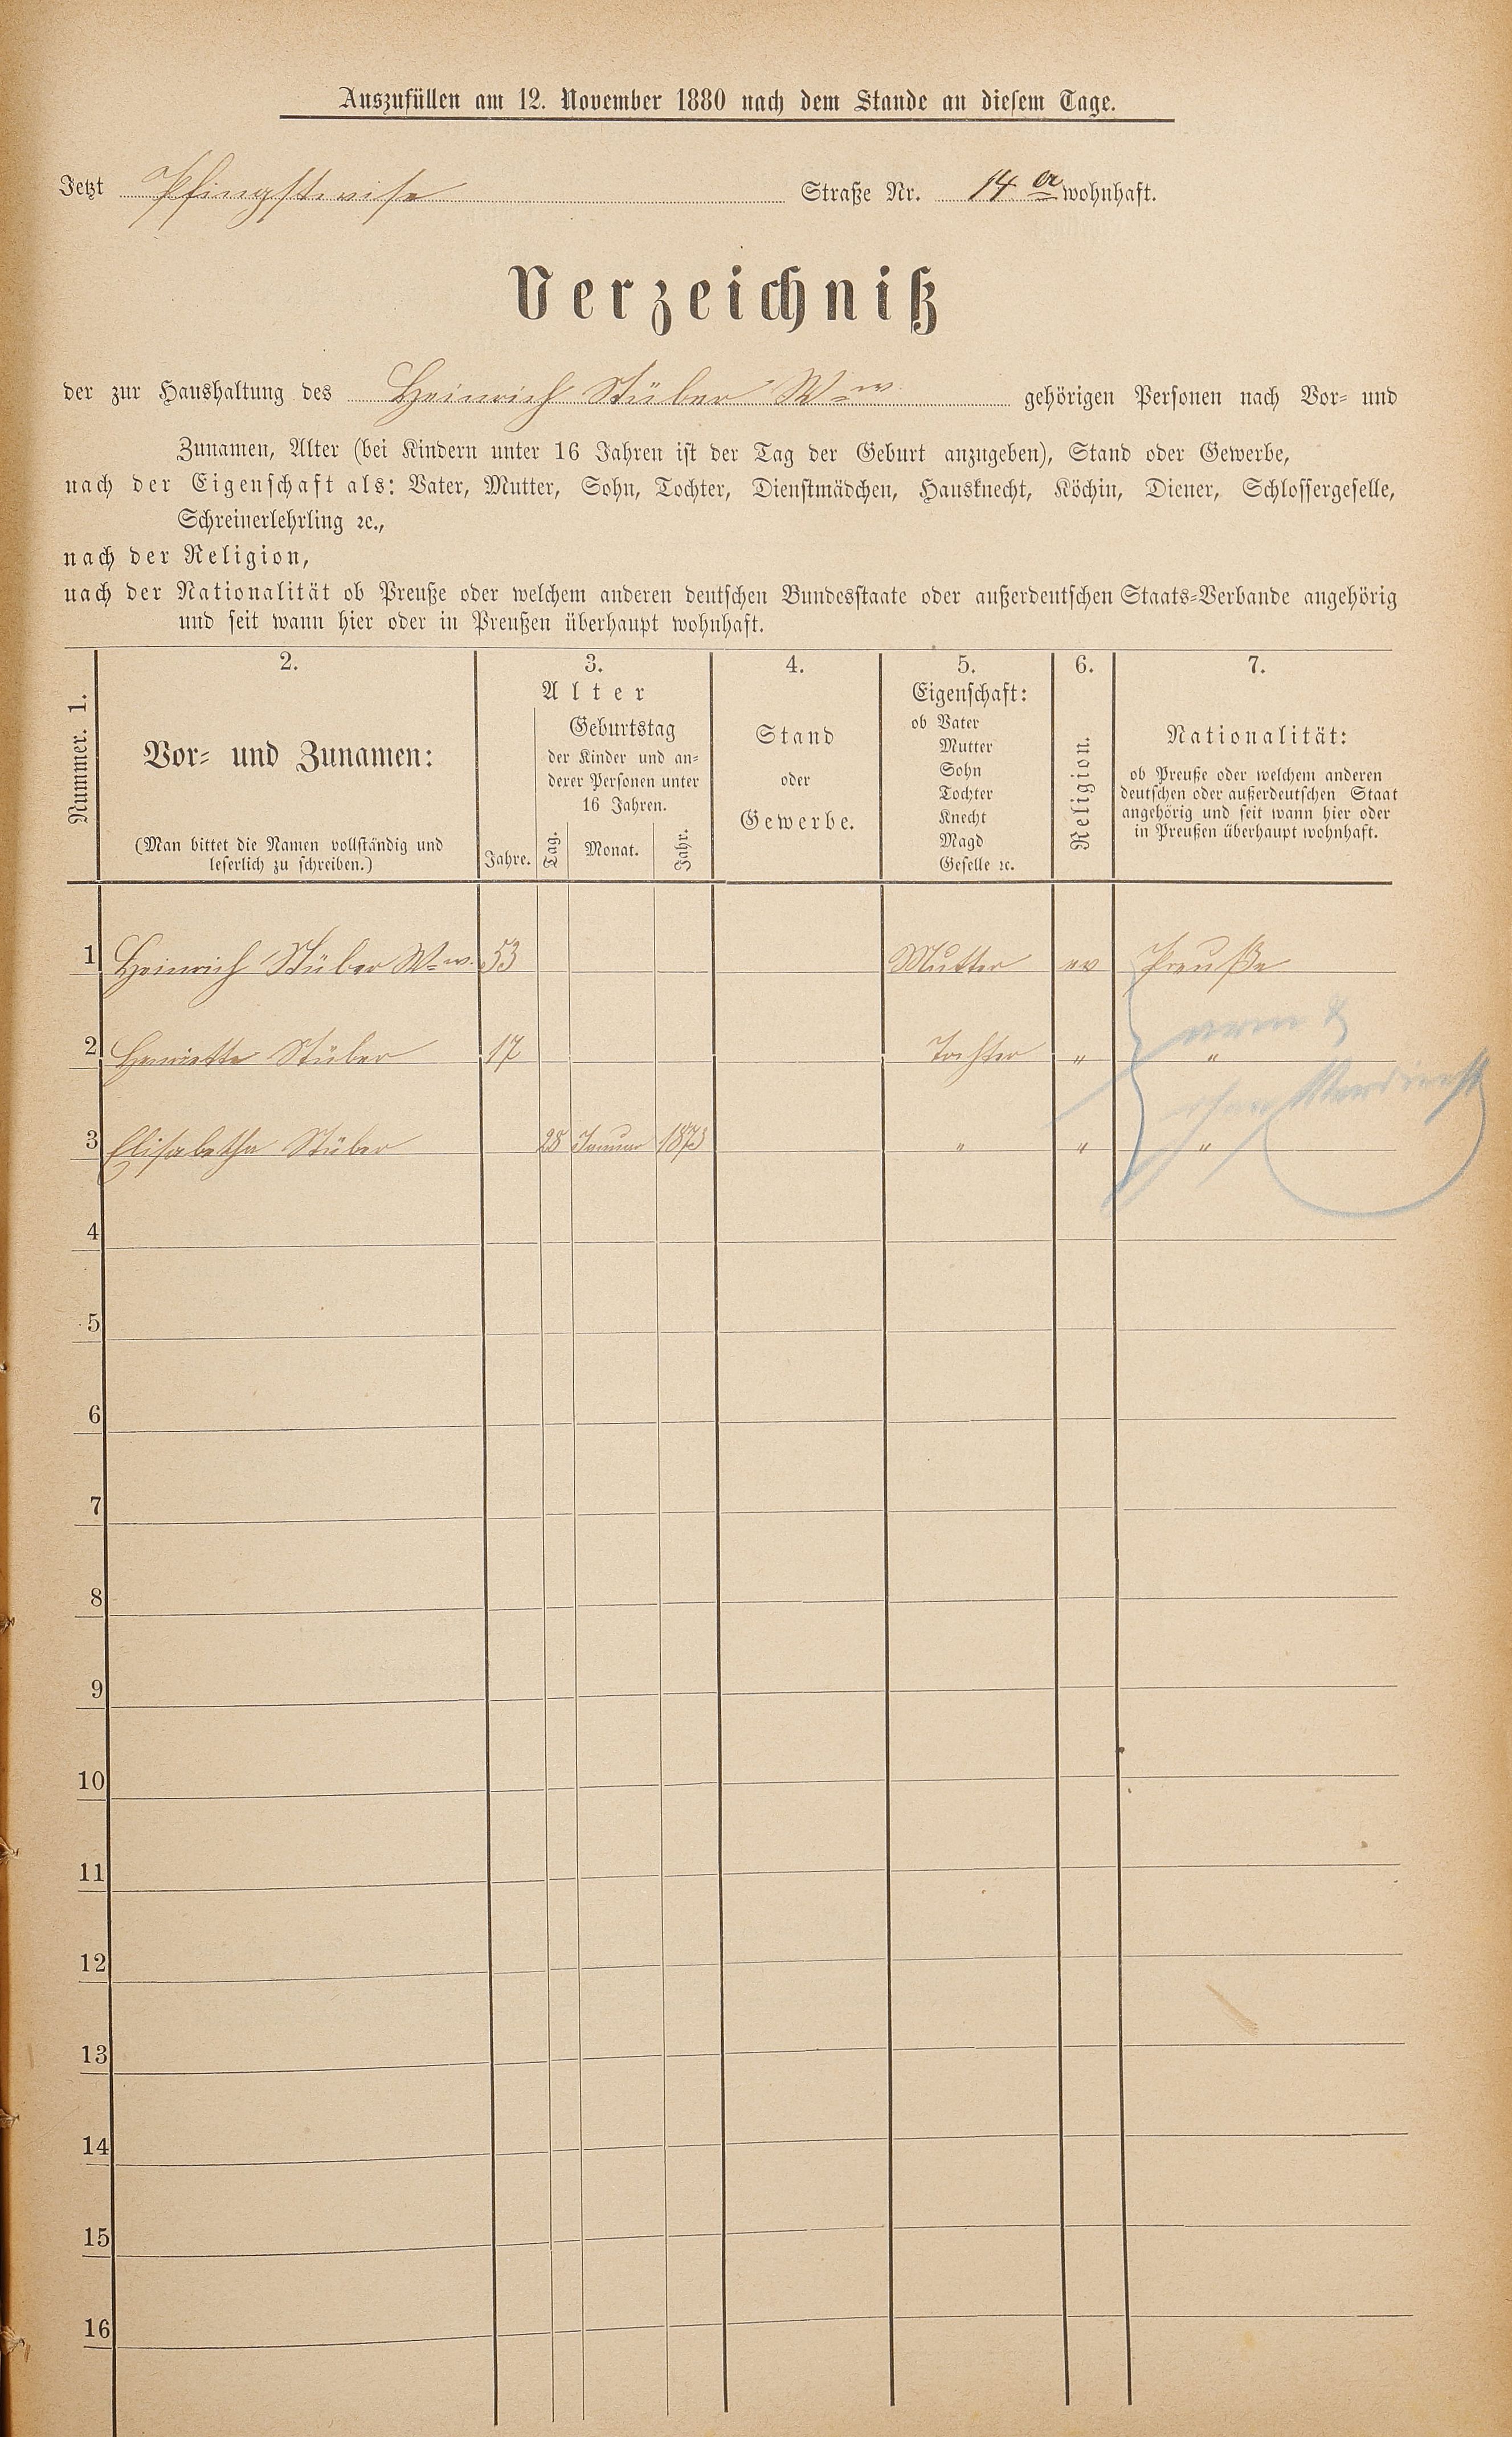 Auszufüllen am 12. November 1880 nach dem Stande an diesem Tage.
Jetzt Pfingstwiese Straße Nr. 14 a wohnhaft.
Verzeichniß
der zur Haushaltung des Heinrich Stüber Ww. gehörigen Personen nach Vor- und
Zunamen, Alter (bei Kindern unter 16 Jahren ist der Tag der Geburt anzugeben), Stand oder Gewerbe,
nach der Eigenschaft als: Vater, Mutter, Sohn, Tochter, Dienstmädchen, Hausknecht, Köchin, Diener, Schlossergeselle,
Schreinerlehrling ꝛc.,
nach der Religion,
nach der Nationalität ob Preuße oder welchem anderen deutschen Bundesstaate oder außerdeutschen Staats-Verbande angehörig
und seit wann hier oder in Preußen überhaupt wohnhaft.
Nummer. 1.
2.
Vor- und Zunamen:
(Man bittet die Namen vollständig und
leserlich zu schreiben.)
3.
Alter
Jahre.
Geburtstag
der Kinder und an-
derer Personen unter
16 Jahren.
Tag.
Monat.
Jahr.
4.
Stand
oder
Gewerbe.
5.
Eigenschaft:
ob Vater
Mutter
Sohn
Tochter
Knecht
Magd
Geselle ꝛc.
6.
Religion.
7.
Nationalität:
ob Preuße oder welchem anderen
deutschen oder außerdeutschen Staat
angehörig und seit wann hier oder
in Preußen überhaupt wohnhaft.
1 Heinrich Stüber Ww. 53 Mutter ev Preuße
2 Henriette Stüber 17 Tochter " "
arm &
ohne Verdienst
3 Elisabetha Stüber 28 Januar 1873 " " "
4
5
6
7
8
9
10
11
12
13
14
15
16